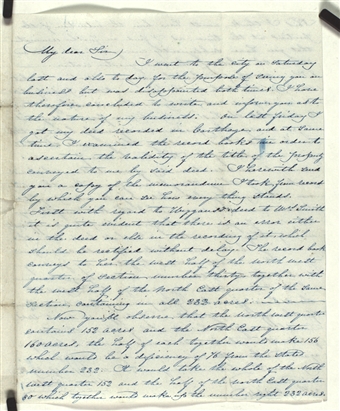 My dear Sir,
I went to the city on Saturday
last and also to day for the purpose of seeing you on
business but was disappointed both times. I have
therefore concluded to write and inform you as to
the nature of my business. On last friday I
got my deed recorded in Carthage and at same
time I examined the record books in order to
ascertain the validity of the title of the property
conveyed to me by said deed. I herewith send
you a copy of the memorandum I took from record
by which you can see how every thing stands.
First with regard to deed to
it is quite evident that there is an error either
in the deed or else in the recording of it which
should be rectified without delay. The record book
conveys to him the west half of the north west
quarter of section number thirty together with
the west half of the North East quarter of the same
section, containing in all 232 acres.
Now you'll observe that the north west quarter
contains 152 acres and the North East quarter
160 acres, the half of each together would make 156
which would be a deficiency of 76 from the stated
number 232. It would take the whole of the North
west quarter 152 and the half of the north East quarter
80 which together would make up the number right 232 acres.